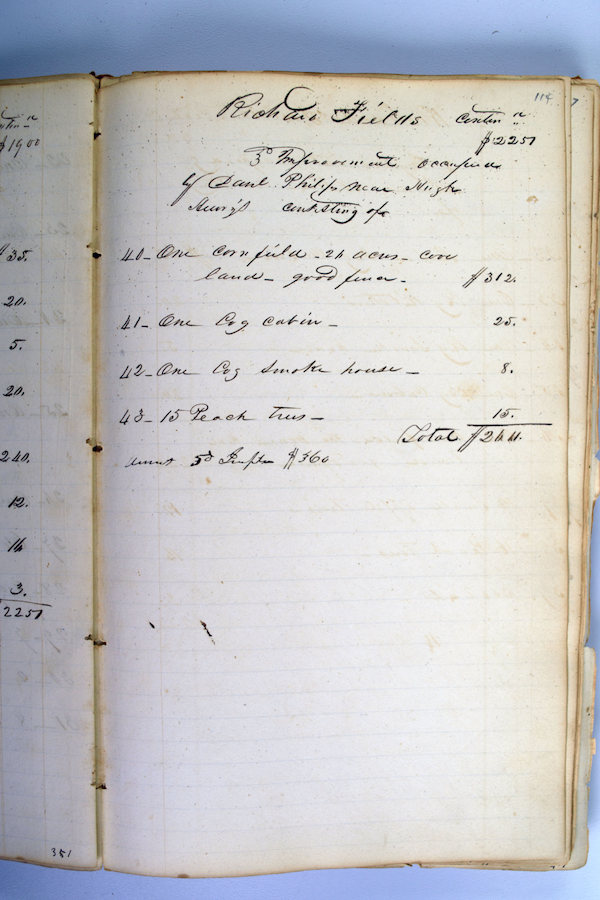 114
Richard Fields Contin n
$2251
3d Improvement occupied
by Danl. Philips near Hugh
Henry's consisting of
40 - One cornfield - 26 acres - cove
land - good fence - $312.
41 - One Log cabin - 25.
42 - One Log smoke house - 8.
43 - 15 Peach trees - 15.
Total $2611.
3d Impts $360
$1900
$35.
20.
5.
20.
240.
12.
16
3.
2251
351